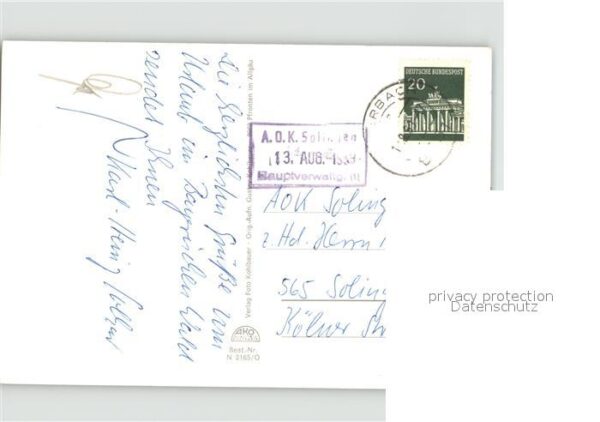 Die herzlichsten Grüße vom
Urlaub im Bayrischen Wald
sendet Ihnen
Karl-Heinz
Verlag Foto Kohlbauer - Orig.-Aufn. Pfronten im Allgäu
AKO
Best.-Nr.
N 2165/O
A.O.K. Solingen
13. AUG. 1969
Hauptverwaltg.
20
DEUTSCHE BUNDESPOST
RBAC
AOK Soling
z. Hd. Herrn
565 Soling
Kölner Str
privacy protection
Datenschutz